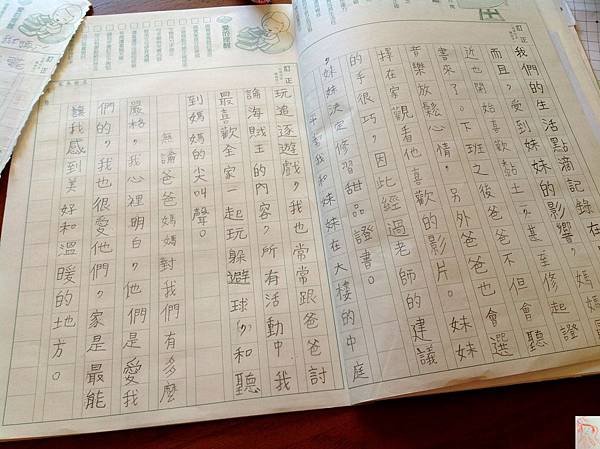 我們的生活點滴記錄在
而且，受到妹妹的影響，媽媽最
近也開始喜歡黏土，甚至修起證
書來了。下班之後爸爸不但會聽
音樂放鬆心情。另外爸爸也會選
擇在家觀看他喜歡的影片。妹妹
的手很巧，因此經過老師的建議
，妹妹決定修習甜品證書。
平常我和妹妹在大樓的中庭
玩追逐遊戲，我也常常跟爸爸討
論海賊王的內容，所有活動中我
最喜歡全家一起玩躲避球，和聽
到媽媽的尖叫聲。
無論爸爸媽媽對我們有多麼
嚴格，我心裡明白，他們是愛我
們的，我也很愛他們，家是最能
讓我感到美好和溫暖的地方。
訂正
訂正